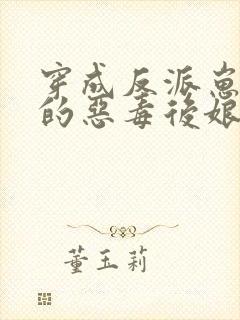 穿成反派崽崽
的惡毒後娘
董玉莉